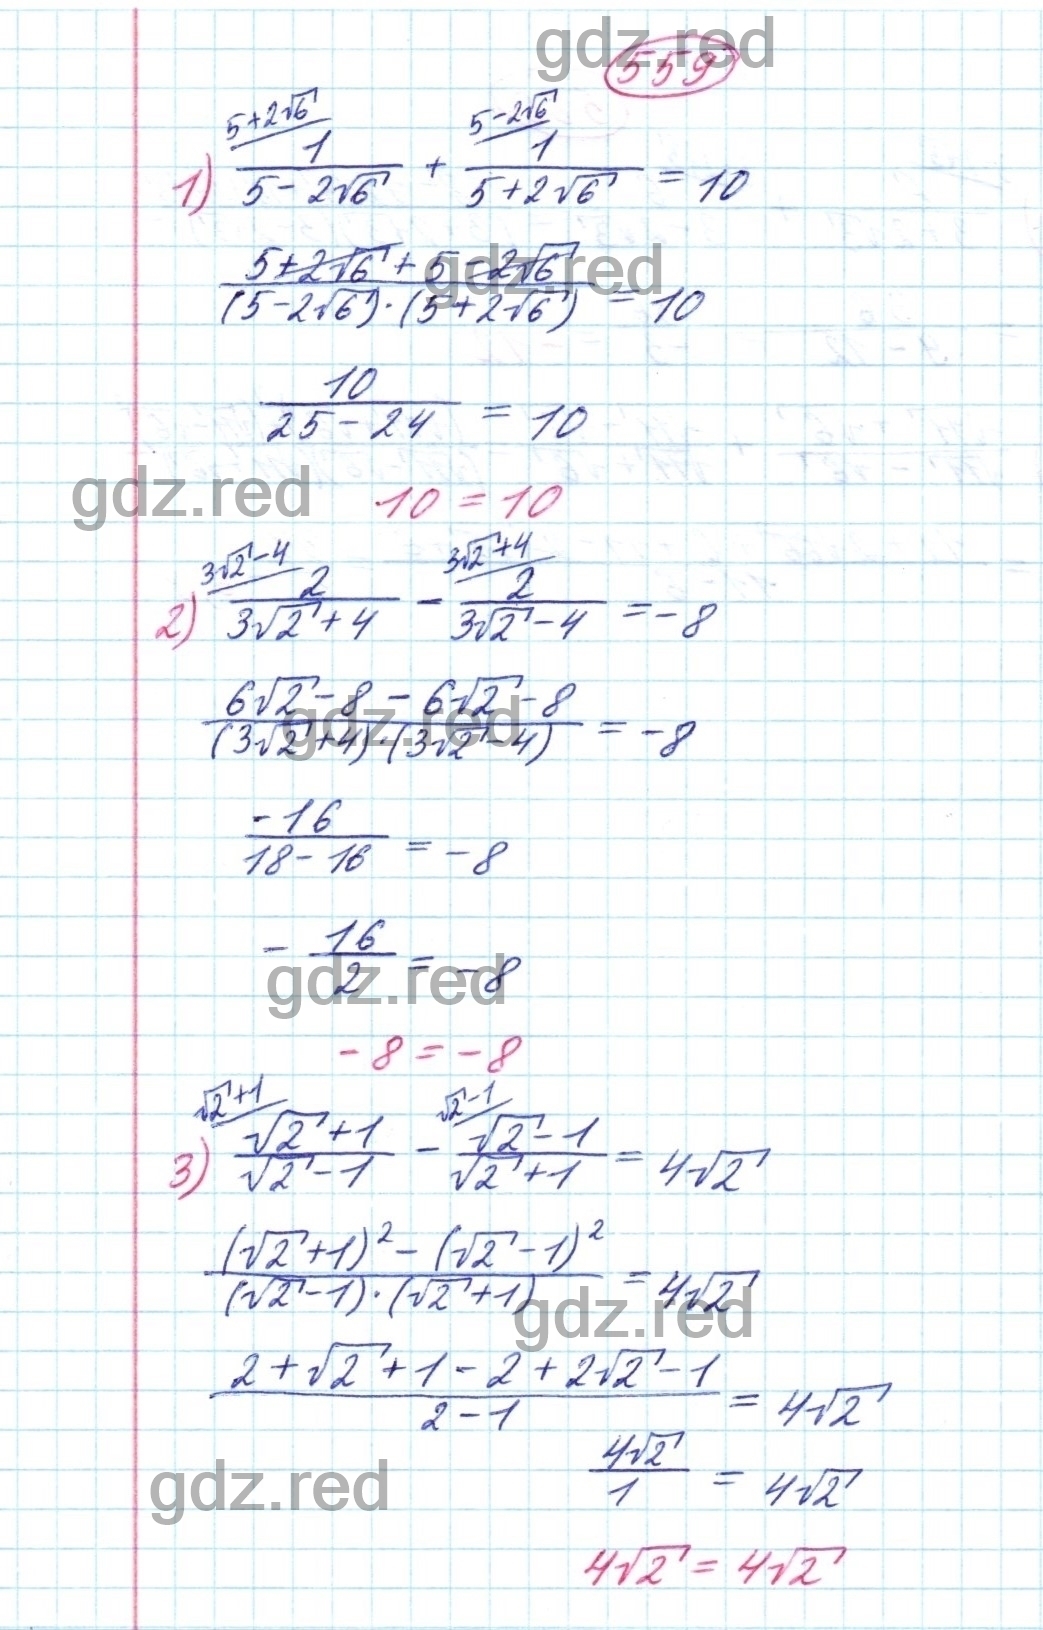 gdz.red
559
5+2√6 5-2√6
1) 1/(5-2√6) + 1/(5+2√6) = 10
(5+2√6+5-2√6)/((5-2√6)·(5+2√6)) = 10
gdz.red
10/(25-24) = 10
gdz.red
10 = 10
3√2-4 3√2+4
2) 2/(3√2+4) - 2/(3√2-4) = -8
(6√2-8-6√2-8)/((3√2+4)·(3√2-4)) = -8
gdz.red
-16/(18-16) = -8
- 16/2 = -8
gdz.red
-8 = -8
√2+1 √2-1
3) (√2+1)/(√2-1) - (√2-1)/(√2+1) = 4√2
((√2+1)²-(√2-1)²)/((√2-1)·(√2+1)) = 4√2
gdz.red
(2+√2+1-2+2√2-1)/(2-1) = 4√2
4√2/1 = 4√2
gdz.red
4√2 = 4√2